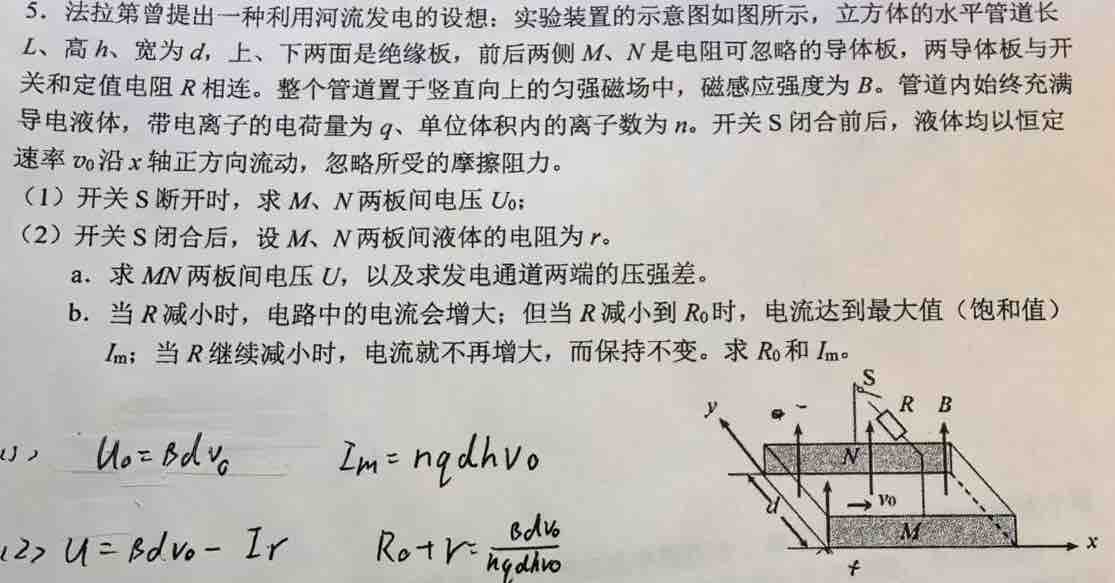 5．法拉第曾提出一种利用河流发电的设想：实验装置的示意图如图所示，立方体的水平管道长
L、高 h、宽为 d，上、下两面是绝缘板，前后两侧 M、N 是电阻可忽略的导体板，两导体板与开
关和定值电阻 R 相连。整个管道置于竖直向上的匀强磁场中，磁感应强度为 B。管道内始终充满
导电液体，带电离子的电荷量为 q、单位体积内的离子数为 n。开关 S 闭合前后，液体均以恒定
速率 v₀沿 x 轴正方向流动，忽略所受的摩擦阻力。
（1）开关 S 断开时，求 M、N 两板间电压 U₀；
（2）开关 S 闭合后，设 M、N 两板间液体的电阻为 r。
a．求 MN 两板间电压 U，以及求发电通道两端的压强差。
b．当 R 减小时，电路中的电流会增大；但当 R 减小到 R₀时，电流达到最大值（饱和值）
Iₘ；当 R 继续减小时，电流就不再增大，而保持不变。求 R₀和 Iₘ。
S
y R B
N
d v₀
M
x
U₀=Bdv₀ Iₘ=nqdhv₀
(2) U=Bdv₀-Ir R₀+r=Bdv₀/nqdhv₀